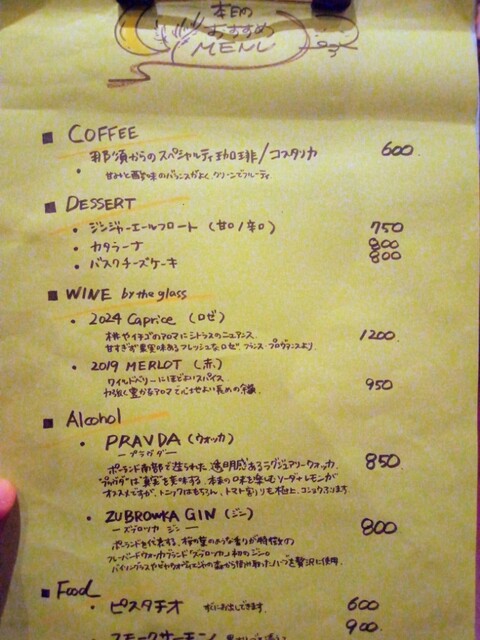 本日の
おすすめ
MENU
■ COFFEE
・ 那須からのスペシャルティ珈琲/コスタリカ 600.
甘みと酸味のバランスがよく クリーンでフルーティ
■ DESSERT
・ ジンジャーエールフロート (甘口/辛口) 750
・ カタラーナ 800
・ バスクチーズケーキ 800
■ WINE by the glass
・ 2024 Caprice (ロゼ) 1200.
桃やイチゴのアロマにシトラスのニュアンス.
甘すぎず果実味あるフレッシュなロゼ. フランス・プロヴァンスより.
・ 2019 MERLOT (赤) 950
ワイルドベリーにほどよいスパイス
力強く豊かなアロマで心地よい長めの余韻.
■ Alcohol
・ PRAVDA (ウォッカ) 850.
ー プラヴダ ー
ポーランド南部で造られた 透明感あるラグジュアリーウォッカ.
"プラヴダ"は"真実"を意味する. 本来の口を楽しむ ソーダ+レモンが
オススメですが、トニックはもちろん、トマト割りも極上.
・ ZUBROWKA GIN (ジン) 800
ー ズブロッカ ジン ー
ポーランドを代表する. 桜の葉のような香りが特徴の
フレーバードウォッカブランド「ズブロッカ」初のジン。
■ Food
・ ピスタチオ すぐにお出しできます. 600
・ スモークサーモン 900